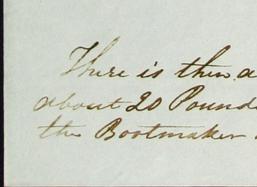 There is then a
about 20 Pounds
the Bootmaker